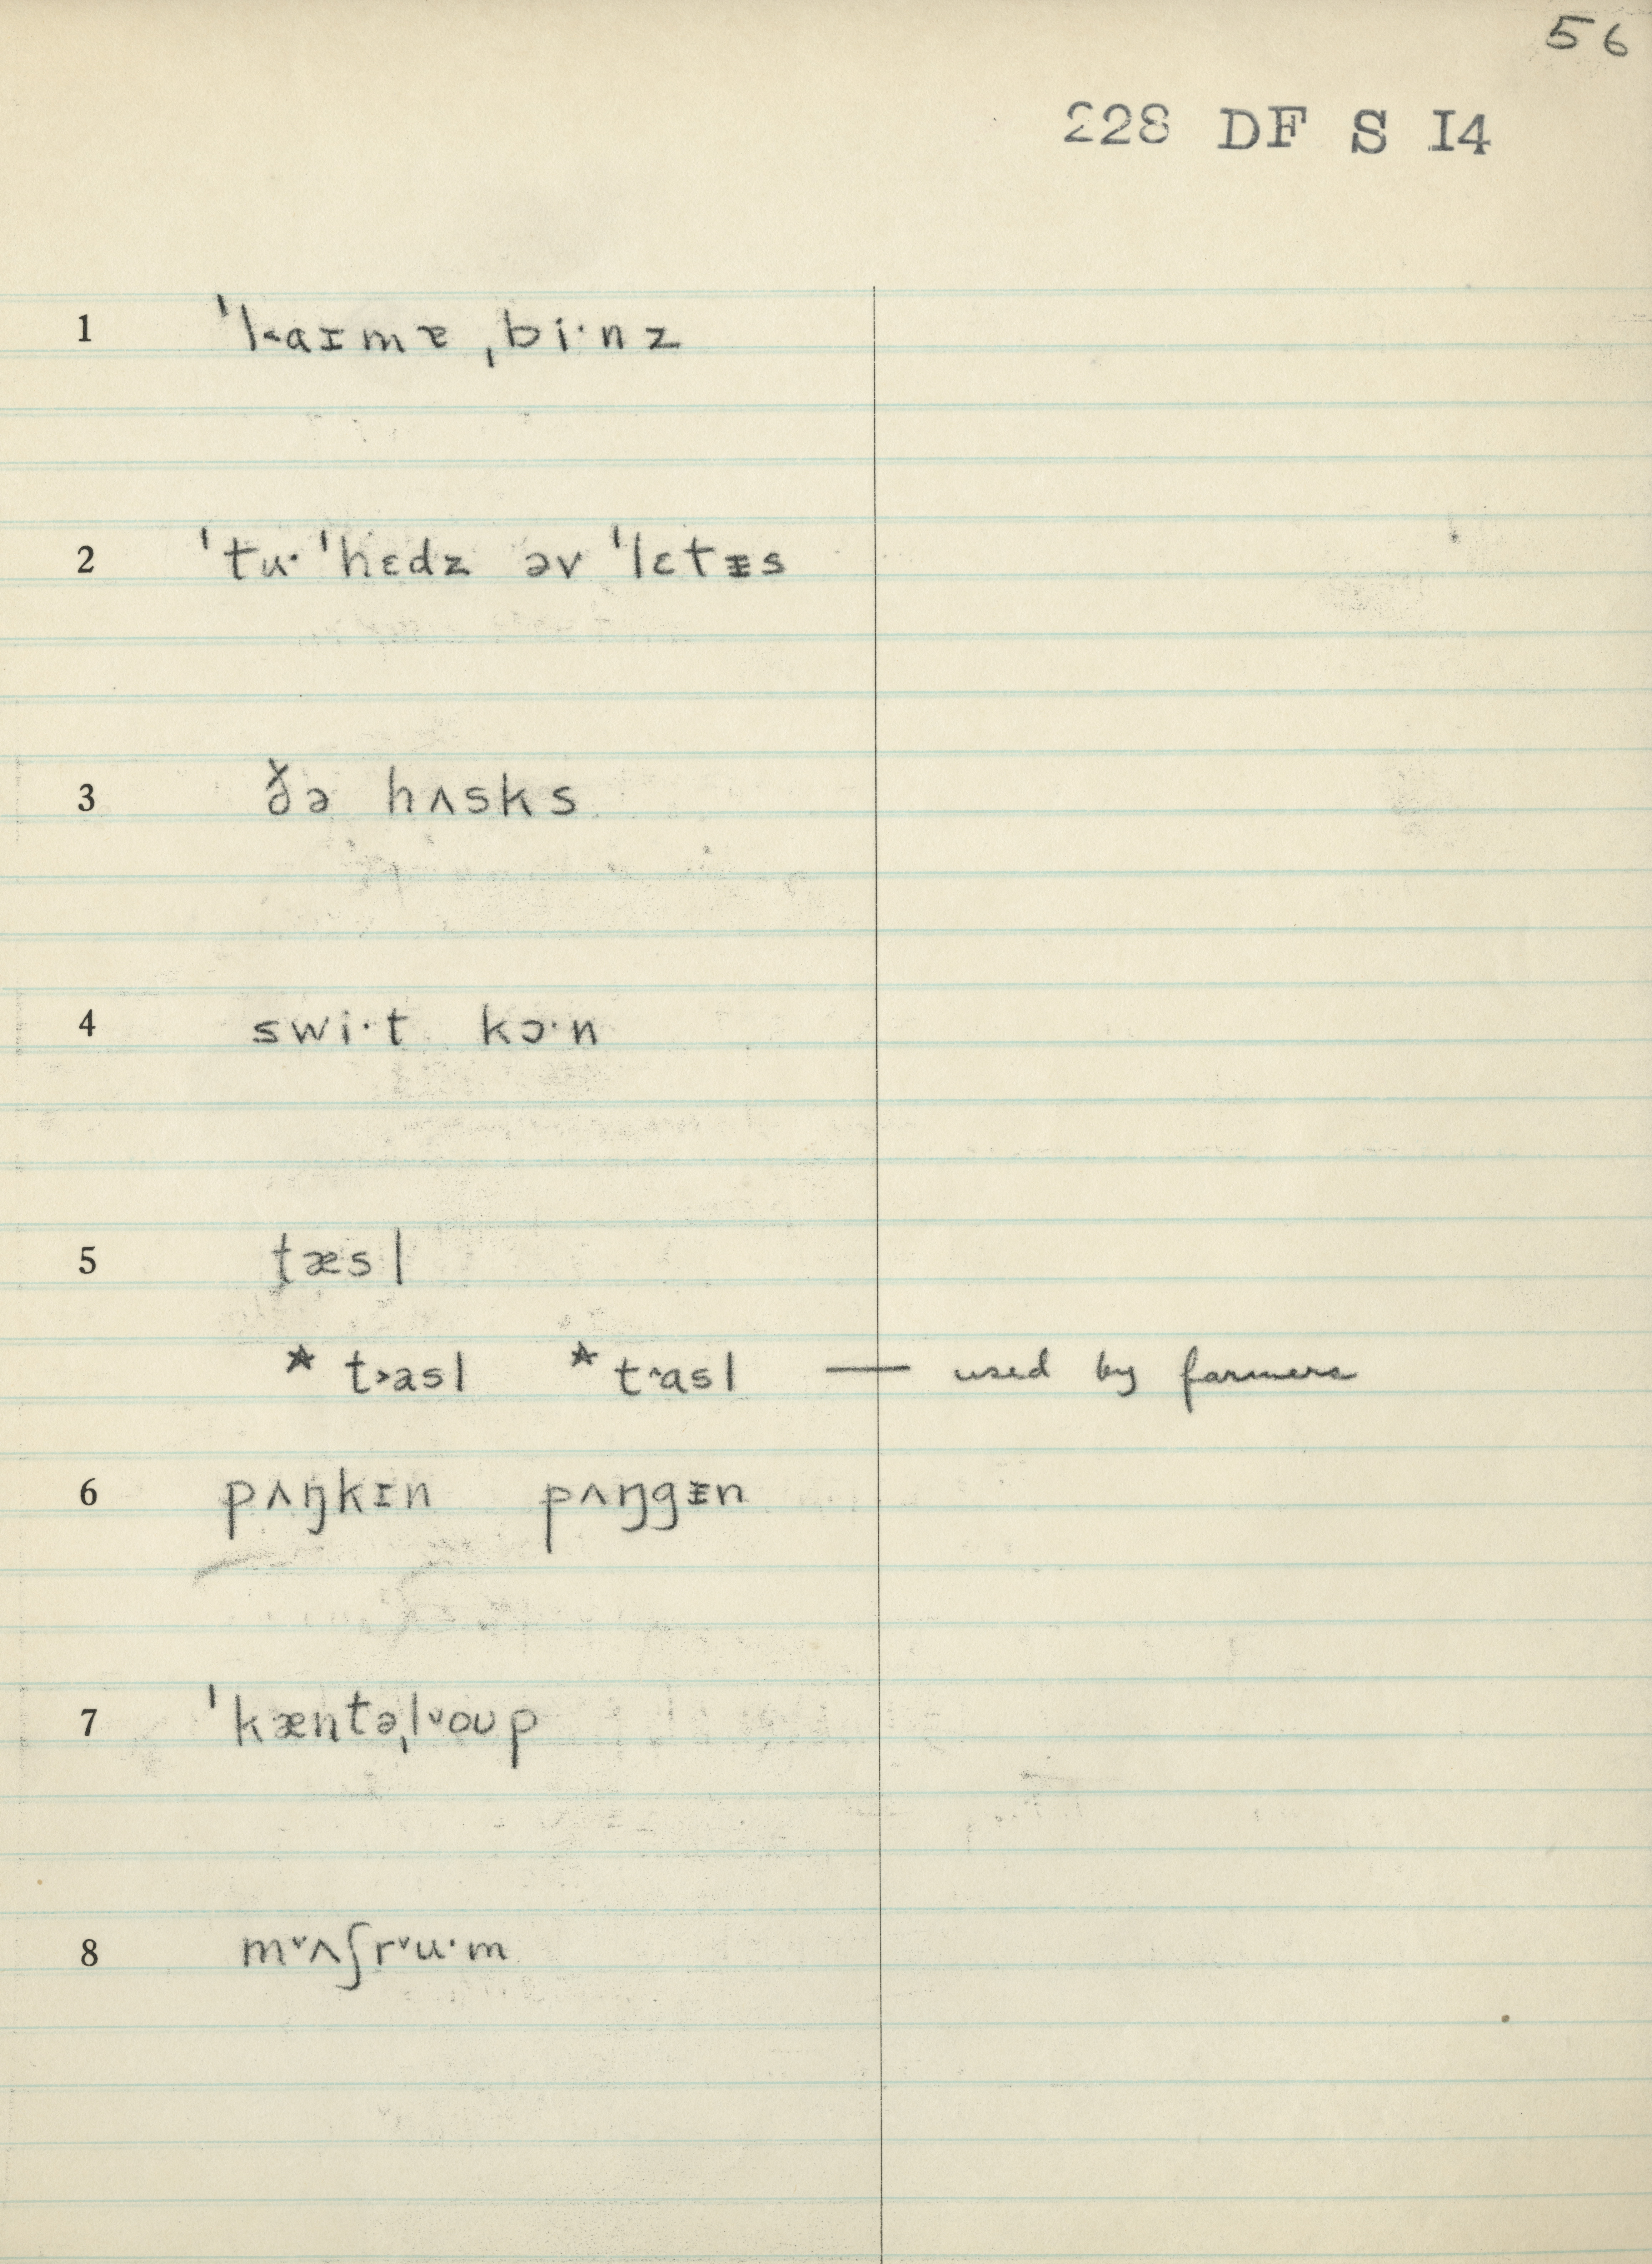 56
228 DF S I4
1 ˈl˂aɪmɐ ˌbiˑnz
2 ˈtuˑ ˈhɛdz əv ˈlɛtᵻs
3 ðə hʌsks
4 swiˑt kɔˑn
5 tæsl
* t˃asl * t˄asl — used by farmers
6 pʌŋkɪn pʌŋgᵻn
7 ˈkæntəˌl˅oʊp
8 m˅ʌʃr˅uˑm